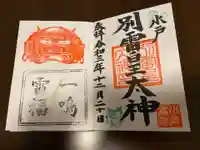 水戸
別雷皇大神
奉拝令和三年十二月二十日
一鳴
雷福